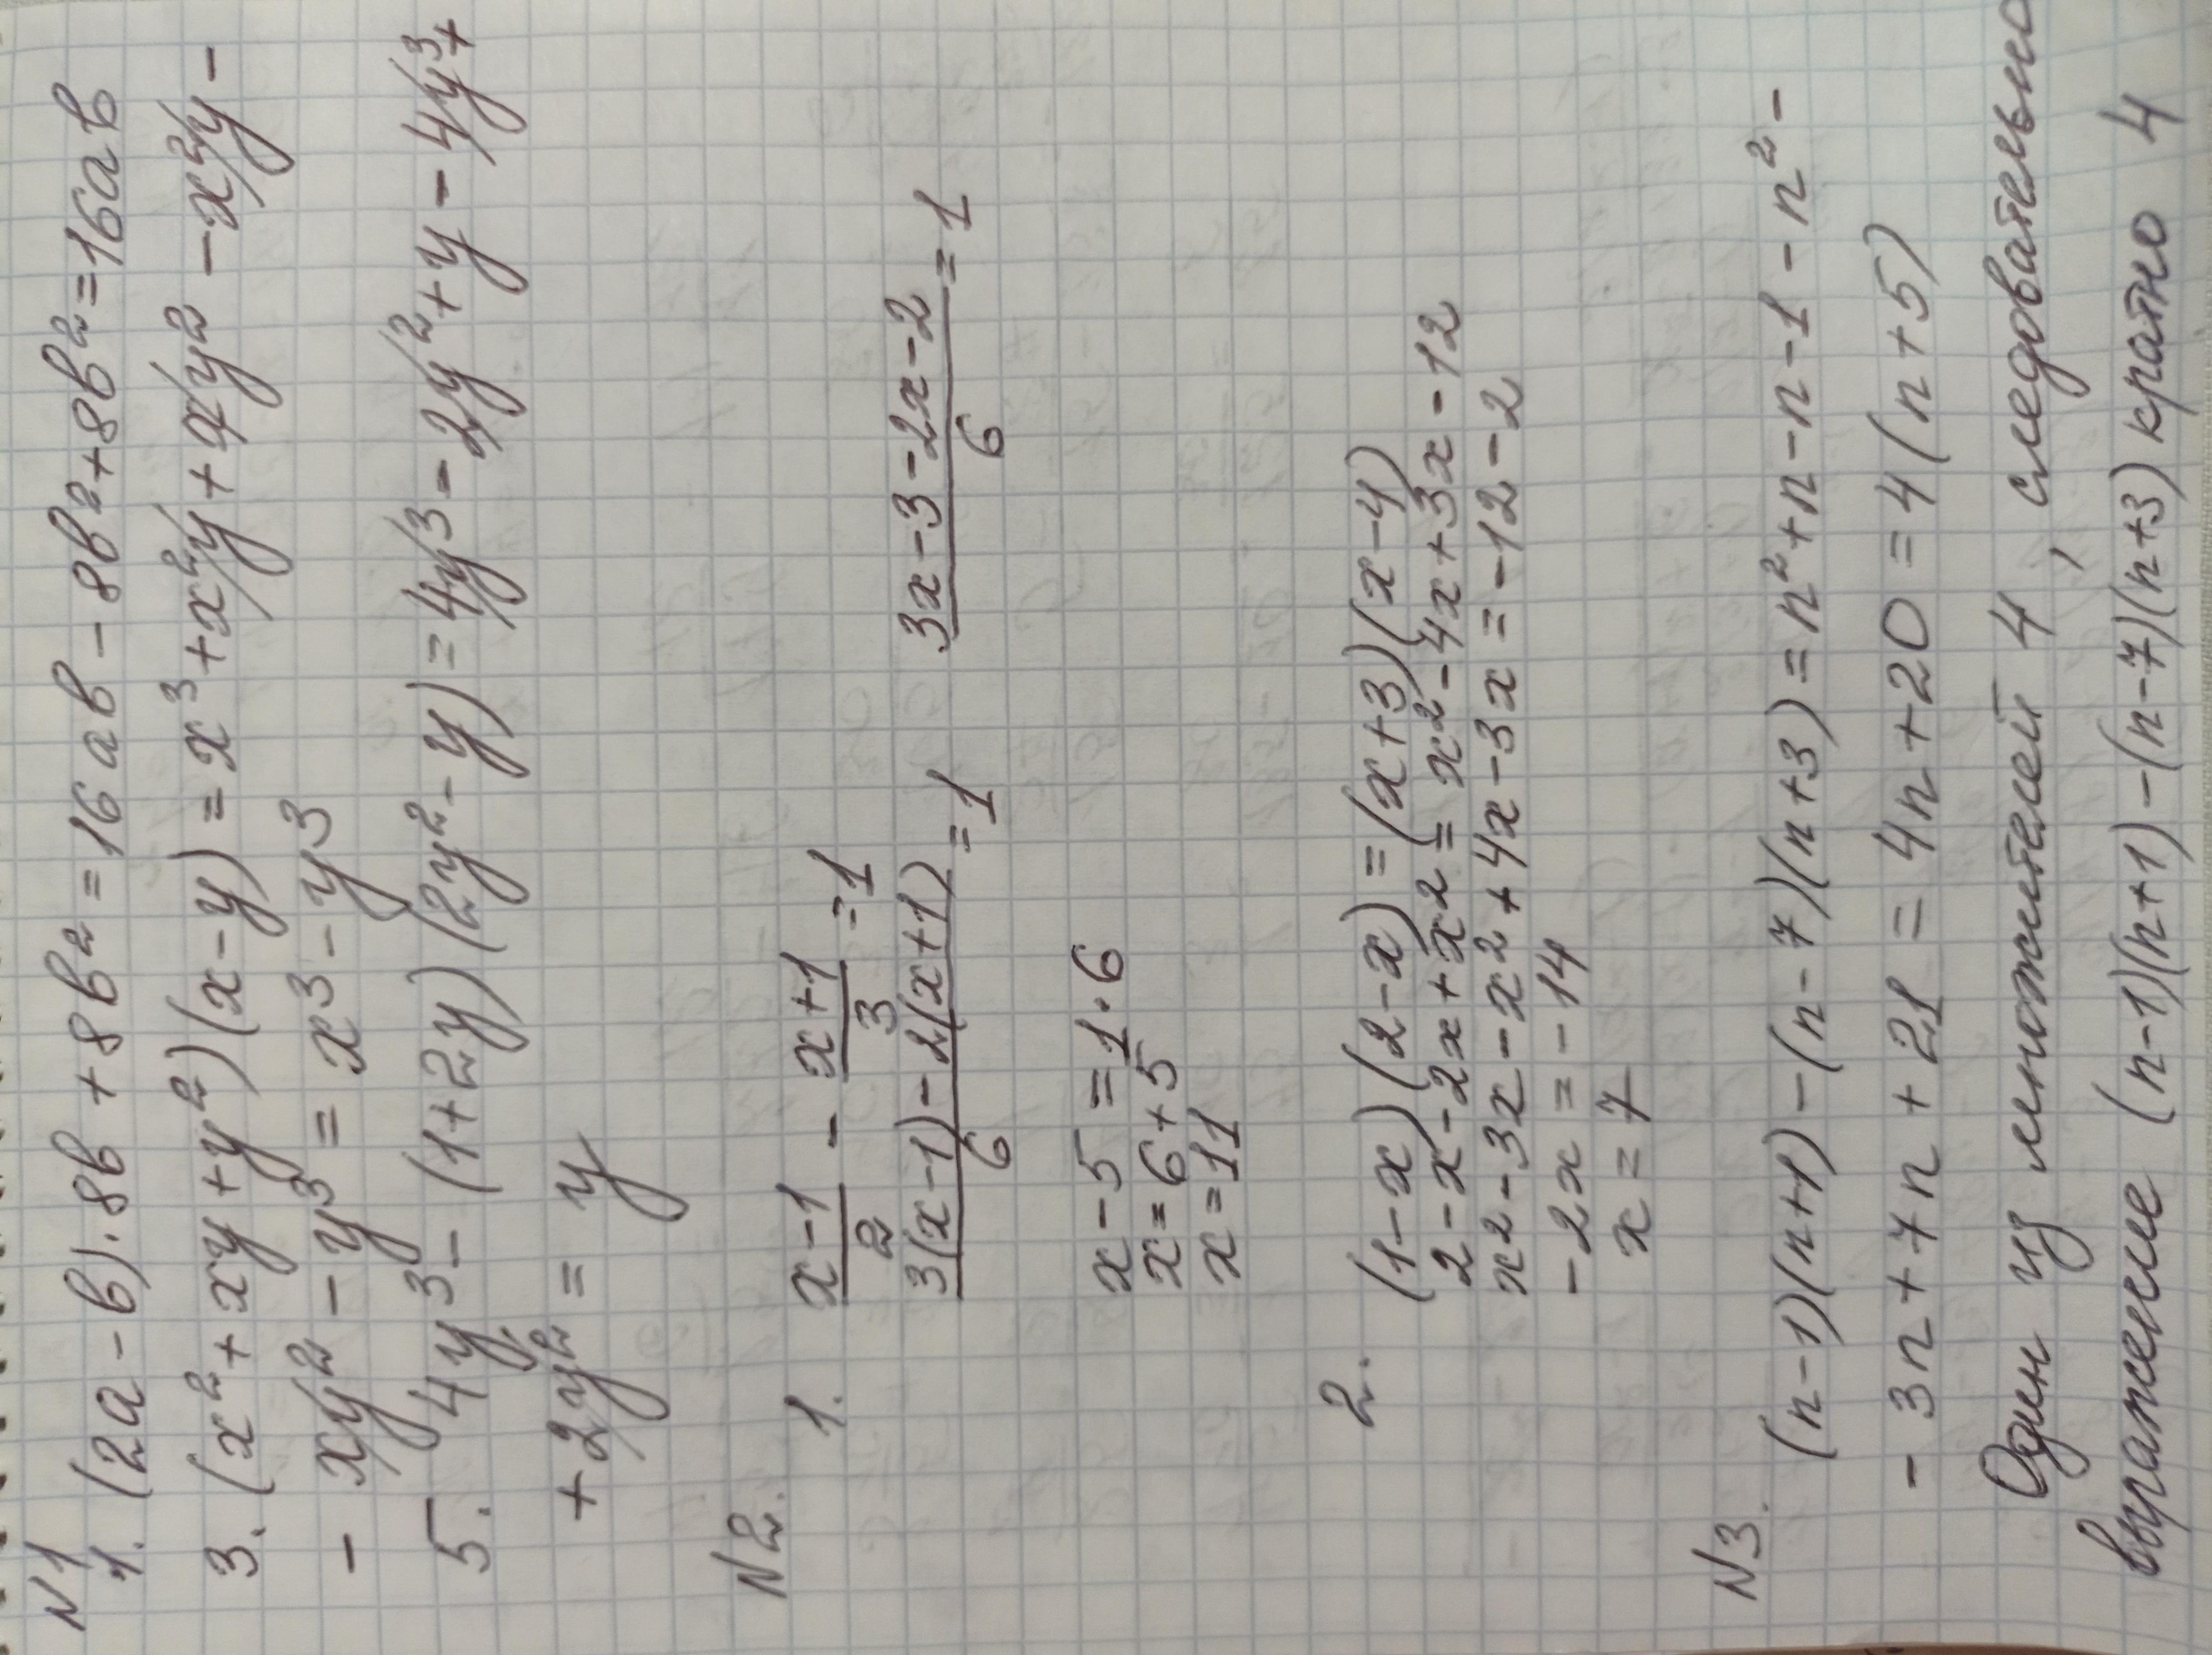 N1
1. (2a - b)·8b + 8b² = 16ab - 8b² + 8b² = 16ab
3. (x² + xy + y²)(x - y) = x³ + x²y + xy² - x²y -
- xy² - y³ = x³ - y³
5. 4y³ - (1 + 2y)(2y² - y) = 4y³ - 2y² + y - 4y³ +
+ 2y² = y
N2.
1. (x-1)/2 - (x+1)/3 = 1
(3(x-1) - 2(x+1))/6 = 1 (3x - 3 - 2x - 2)/6 = 1
x - 5 = 1·6
x = 6 + 5
x = 11
2. (1 - x)(2 - x) = (x + 3)(x - 4)
2 - x - 2x + x² = x² - 4x + 3x - 12
x² - 3x - x² + 4x - 3x = -12 - 2
-2x = -14
x = 7
N3. (n-1)(n+1) - (n-7)(n+3) = n² + n - n - 1 - n² -
- 3n + 7n + 21 = 4n + 20 = 4(n + 5)
Один из множителей 4, следовательно
выражение (n-1)(n+1) - (n-7)(n+3) кратно 4